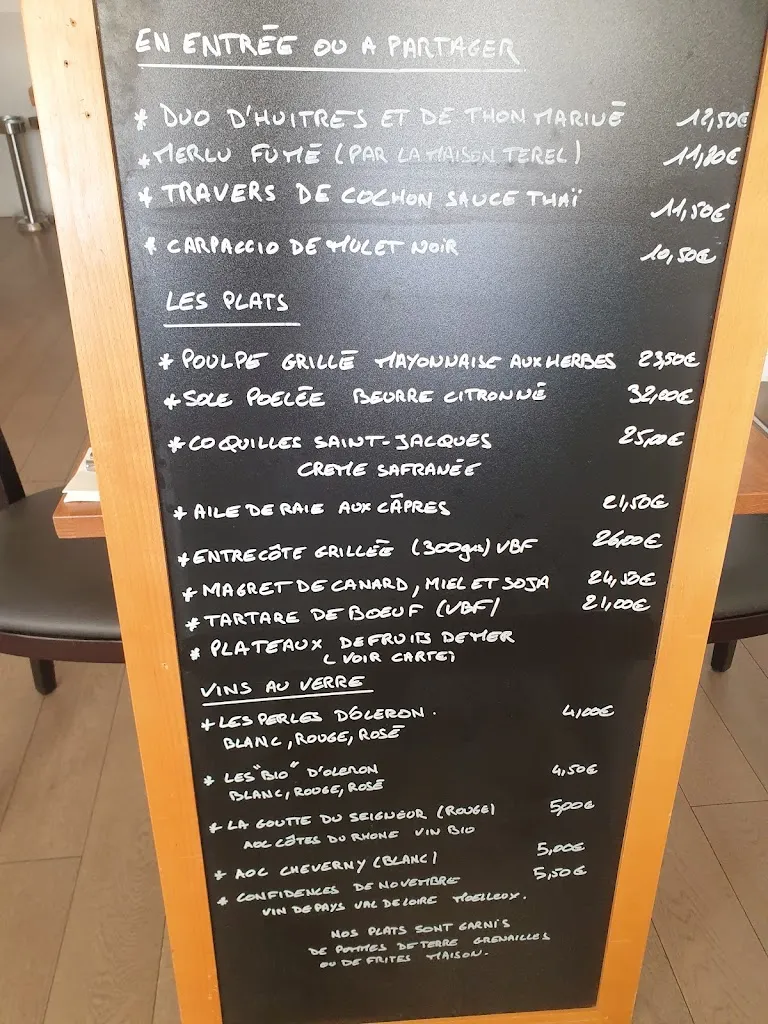 EN ENTRÉE OU A PARTAGER
* DUO D'HUITRES ET DE THON MARINÉ 12,50€
* MERLU FUMÉ (PAR LA MAISON TEREL) 11,80€
* TRAVERS DE COCHON SAUCE THAÏ 11,50€
* CARPACCIO DE MULET NOIR 10,50€
LES PLATS
* POULPE GRILLÉ MAYONNAISE AUX HERBES 23,50€
* SOLE POELÉE BEURRE CITRONNÉ 32,00€
* COQUILLES SAINT-JACQUES 25,00€
CREME SAFRANÉE
* AILE DE RAIE AUX CÂPRES 21,50€
* ENTRECÔTE GRILLÉE (300grs) VBF 26,00€
* MAGRET DE CANARD, MIEL ET SOJA 24,50€
* TARTARE DE BOEUF (VBF) 21,00€
* PLATEAUX DE FRUITS DE MER
(VOIR CARTE)
VINS AU VERRE
* LES PERLES D'OLERON. 4,00€
BLANC, ROUGE, ROSÉ
* LES "BIO" D'OLERON 4,50€
BLANC, ROUGE, ROSÉ
* LA GOUTTE DU SEIGNEUR (ROUGE) 5,00€
AOC CÔTES DU RHONE VIN BIO
* AOC CHEVERNY (BLANC) 5,00€
* CONFIDENCES DE NOVEMBRE 5,50€
VIN DE PAYS VAL DE LOIRE MOELLEUX.
NOS PLATS SONT GARNIS
DE POMMES DE TERRE GRENAILLES
OU DE FRITES MAISON.